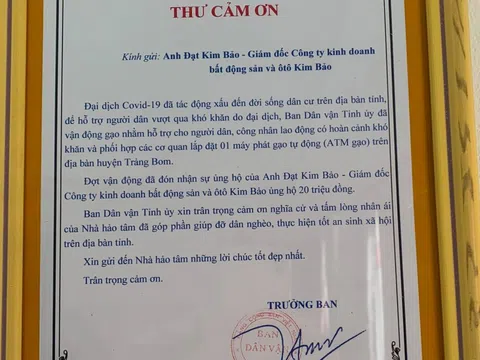 THƯ CẢM ƠN
Kính gửi: Anh Đạt Kim Bảo - Giám đốc Công ty kinh doanh
bất động sản và ôtô Kim Bảo
Đại dịch Covid-19 đã tác động xấu đến đời sống dân cư trên địa bàn tỉnh,
để hỗ trợ người dân vượt qua khó khăn do đại dịch, Ban Dân vận Tỉnh ủy đã
vận động gạo nhằm hỗ trợ cho người dân, công nhân lao động có hoàn cảnh khó
khăn và phối hợp các cơ quan lắp đặt 01 máy phát gạo tự động (ATM gạo) trên
địa bàn huyện Trảng Bom.
Đợt vận động đã đón nhận sự ủng hộ của Anh Đạt Kim Bảo - Giám đốc
Công ty kinh doanh bất động sản và ôtô Kim Bảo ủng hộ 20 triệu đồng.
Ban Dân vận Tỉnh ủy xin trân trọng cảm ơn nghĩa cử và tấm lòng nhân ái
của Nhà hảo tâm đã góp phần giúp đỡ dân nghèo, thực hiện tốt an sinh xã hội
trên địa bàn tỉnh.
Xin gửi đến Nhà hảo tâm những lời chúc tốt đẹp nhất.
Trân trọng cảm ơn.
TRƯỞNG BAN
BAN
DÂN VẬ